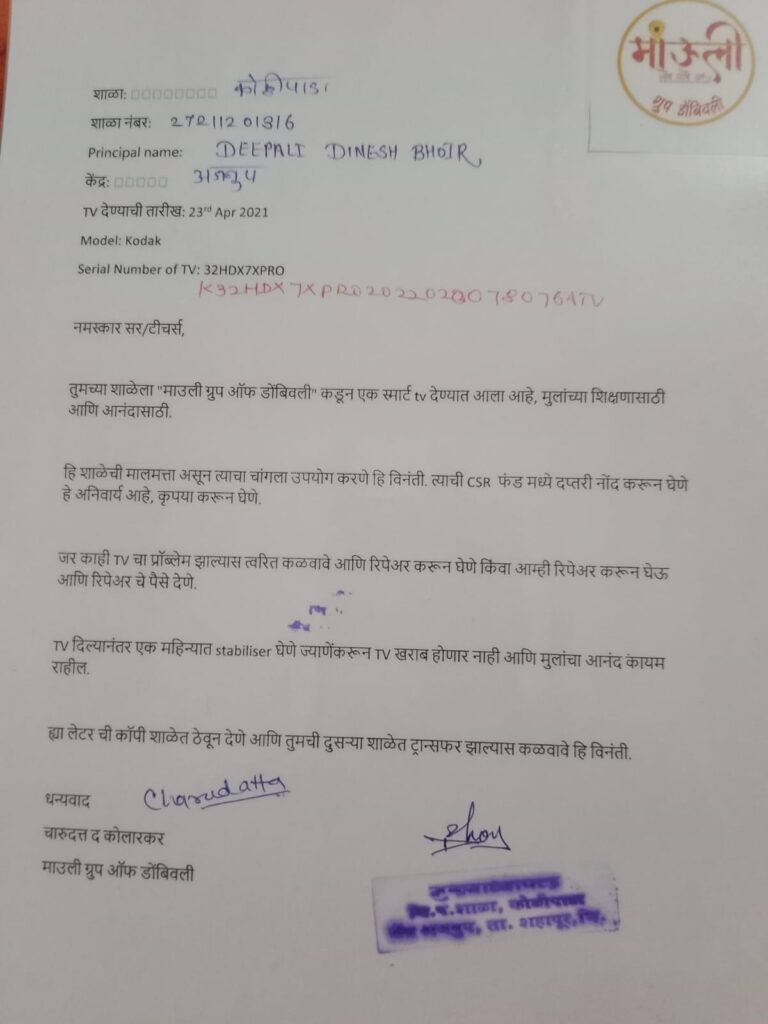 माऊली
ग्रुप डोंबिवली
शाळा: □□□□□□□□ कोळीपाडा
शाळा नंबर: 27211201316
Principal name: DEEPALI DINESH BHOIR,
केंद्र: □□□□□ अजनुप
TV देण्याची तारीख: 23rd Apr 2021
Model: Kodak
Serial Number of TV: 32HDX7XPRO
नमस्कार सर/टीचर्स,
तुमच्या शाळेला "माउली ग्रुप ऑफ डोंबिवली" कडून एक स्मार्ट tv देण्यात आला आहे, मुलांच्या शिक्षणासाठी
आणि आनंदासाठी.
हि शाळेची मालमत्ता असून त्याचा चांगला उपयोग करणे हि विनंती. त्याची CSR फंड मध्ये दप्तरी नोंद करून घेणे
हे अनिवार्य आहे, कृपया करून घेणे.
जर काही TV चा प्रॉब्लेम झाल्यास त्वरित कळवावे आणि रिपेअर करून घेणे किंवा आम्ही रिपेअर करून घेऊ
आणि रिपेअर चे पैसे देणे.
TV दिल्यानंतर एक महिन्यात stabiliser घेणे ज्याणेंकरून TV खराब होणार नाही आणि मुलांचा आनंद कायम
राहील.
ह्या लेटर ची कॉपी शाळेत ठेवून देणे आणि तुमची दुसऱ्या शाळेत ट्रान्सफर झाल्यास कळवावे हि विनंती.
धन्यवाद Charudatta
चारुदत्त द कोलारकर
माउली ग्रुप ऑफ डोंबिवली
जि.प.शाळा, कोळीपाडा
अजनुप, ता. शहापूर, जि.